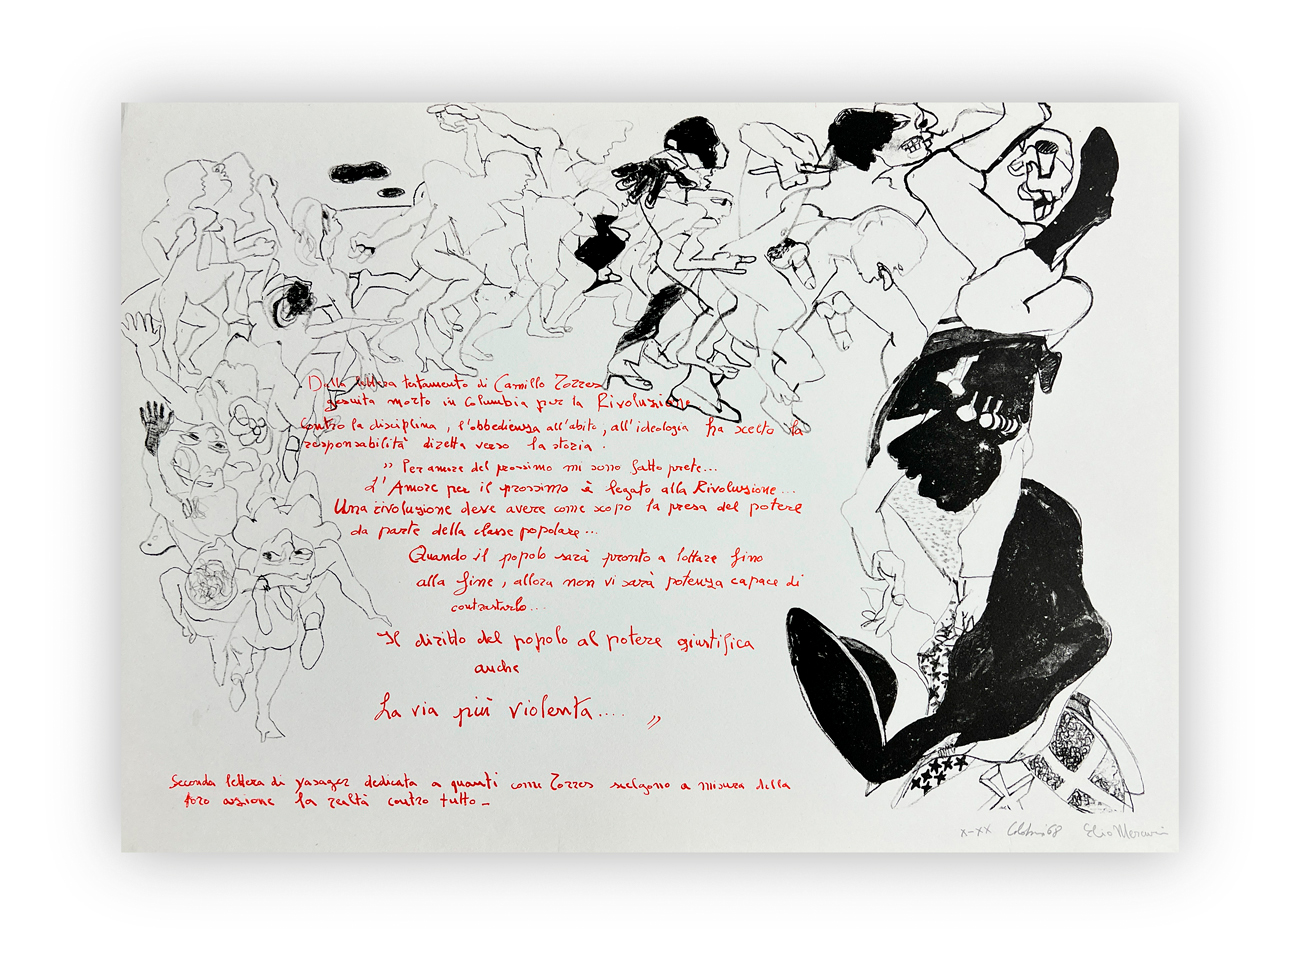 Dalla lettera testamento di Camillo Torres
gesuita morto in Columbia per la Rivoluzione
contro la disciplina, l'obbedienza all'abito, all'ideologia ha scelto la
responsabilità diretta verso la storia.
" Per amore del prossimo mi sono fatto prete...
L'Amore per il prossimo è legato alla Rivoluzione...
Una rivoluzione deve avere come scopo la presa del potere
da parte della classe popolare...
Quando il popolo sarà pronto a lottare fino
alla fine, allora non vi sarà potenza capace di
contrastarlo...
Il diritto del popolo al potere giustifica
anche
La via più violenta.... "
Seconda lettera di yasager dedicata a quanti come Torres scelgono a misura della
loro azione la realtà contro tutto_
X-XX 68 Elio Mercuri